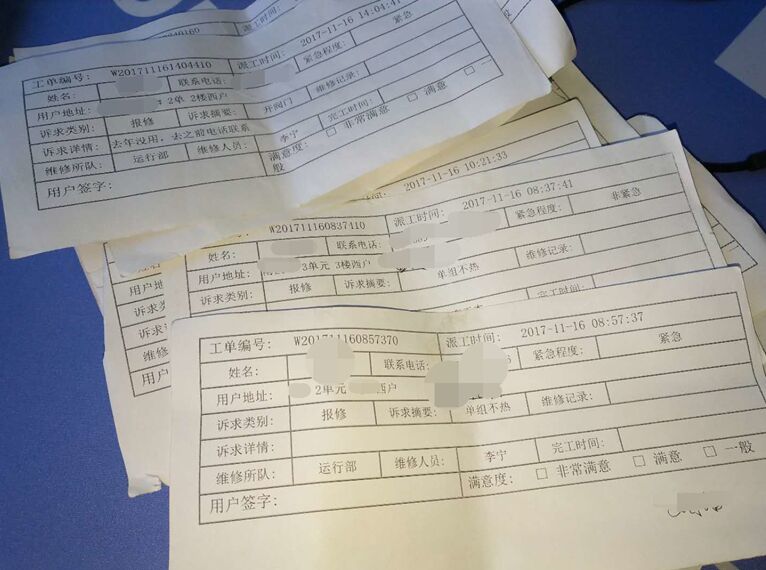 240160
派工时间:
工单编号: W201711161404410 派工时间: 2017-11-16 14:04:41
姓名: 联系电话: 紧急程度: 紧急
用户地址: 2单 2楼西户
诉求类别: 报修 诉求摘要: 开阀门 维修记录:
诉求详情: 去年没用，去之前电话联系
维修所队: 运行部 维修人员: 李宁 完工时间:
满意度: □ 非常满意 □ 满意 □ 一般
用户签字:
2017-11-16 10:21:33
W201711160837410 派工时间: 2017-11-16 08:37:41
姓名: 联系电话: 紧急程度: 非紧急
用户地址: 3单元 3楼西户
诉求类别: 报修 诉求摘要: 单组不热 维修记录:
完工时间:
工单编号: W201711160857370 派工时间: 2017-11-16 08:57:37
姓名: 联系电话: 紧急程度: 紧急
用户地址: 2单元 西户
诉求类别: 报修 诉求摘要: 单组不热 维修记录:
诉求详情:
维修所队: 运行部 维修人员: 李宁 完工时间:
满意度: □ 非常满意 □ 满意 □ 一般
用户签字: